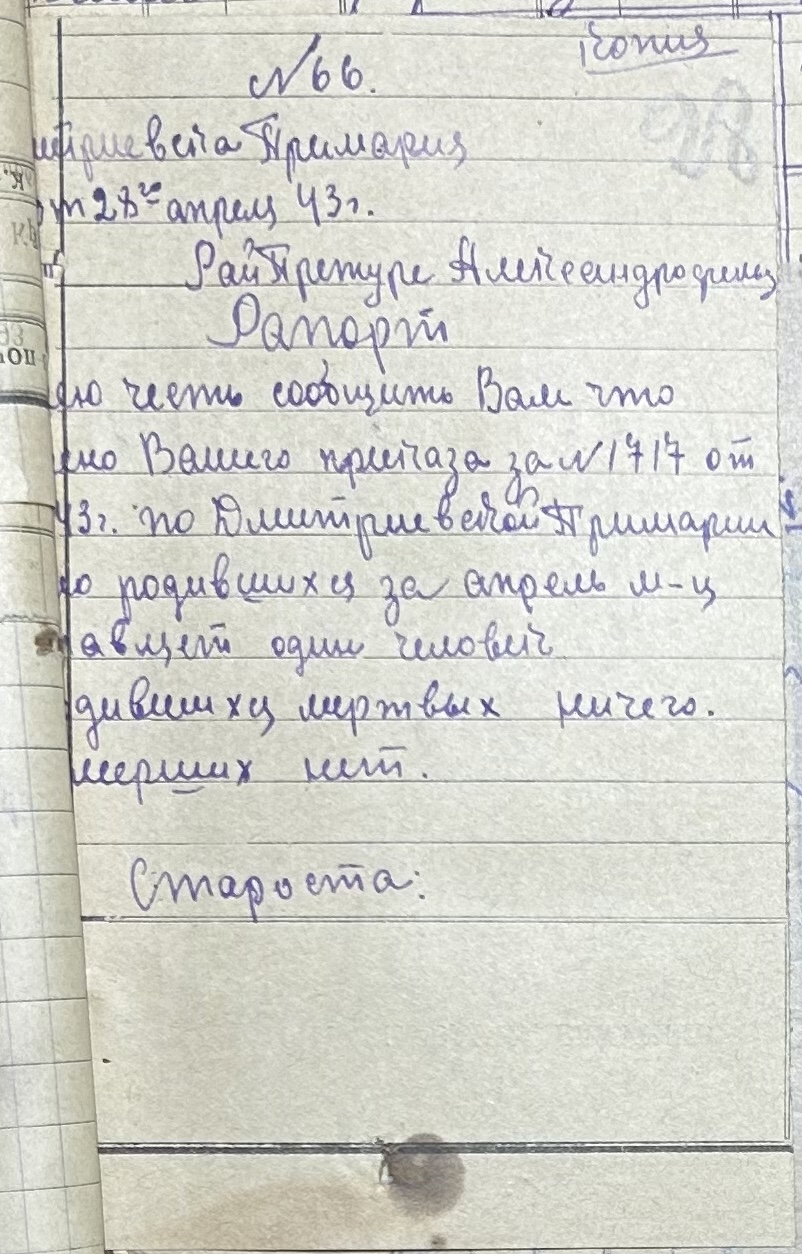 Копия
№ 66.
итриевска Примария
от 28го апреля 43 г.
РайПретуре Александрофельд
Рапорт
ею честь сообщить Вам что
но Вашего приказа за №1717 от
43г. по Дмитриевской Примарии
о родившихся за апрель м-ц
авляет один человек
дившихся мертвых ничего.
мерших нет.
Староста: